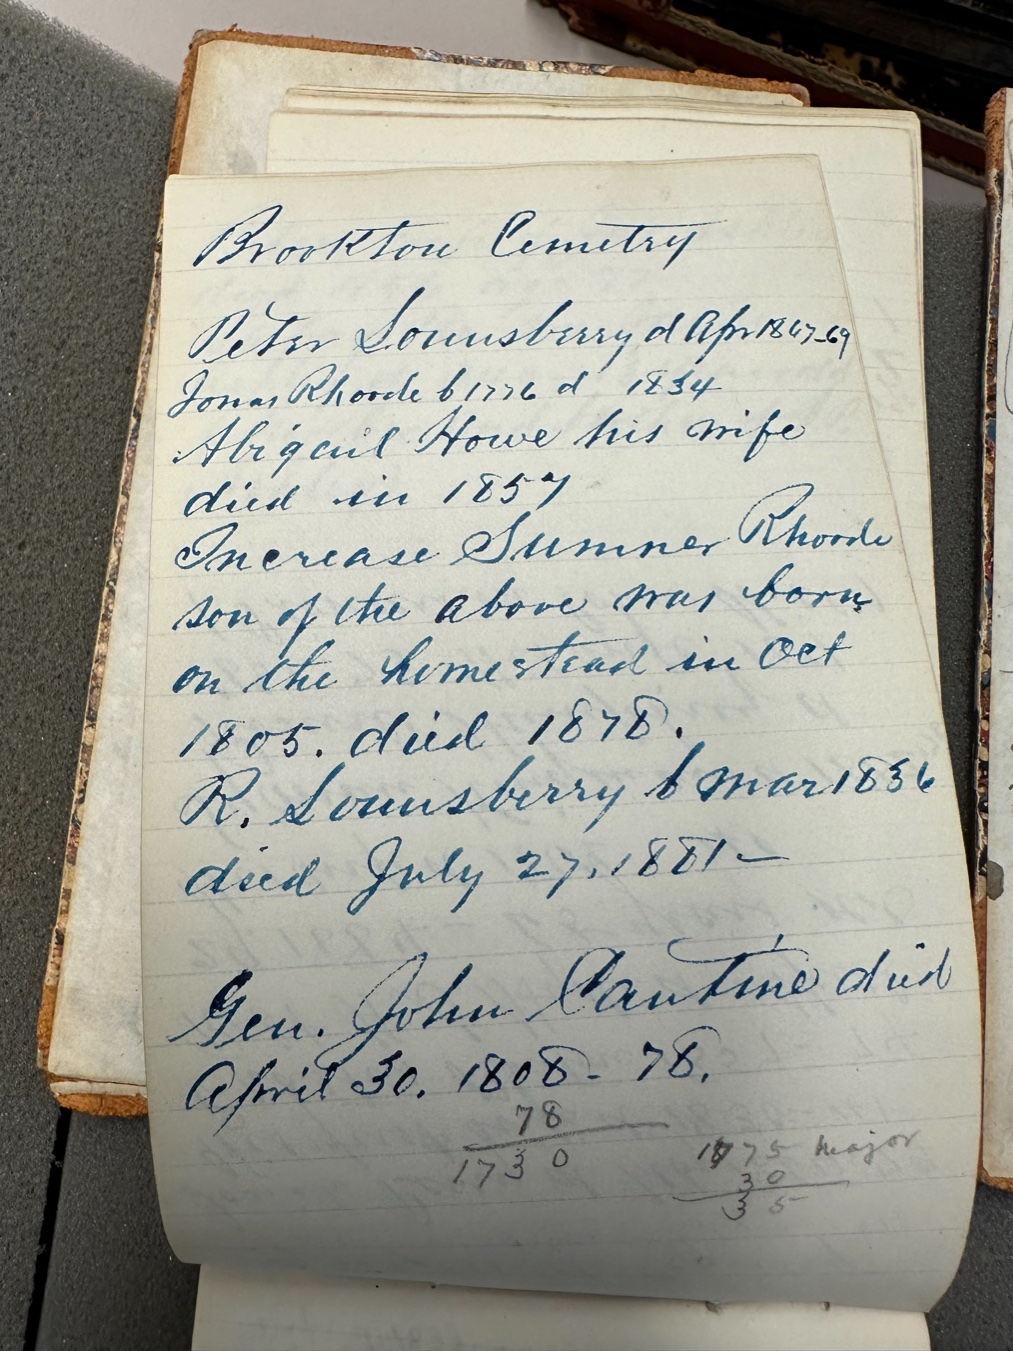 Brookton Cemetry
Peter Lounsberry d Apr 1867-69
Jonas Rhoode b 1776 d 1834
Abigail Howe his wife
died in 1857
Increase Sumner Rhoode
son of the above was born
on the homestead in Oct
1805. died 1878.
R. Lounsberry b Mar 1836
died July 27, 1881 -
Gen. John Cantine died
April 30. 1808 - 78.
78
1730
1775 Major
30
35